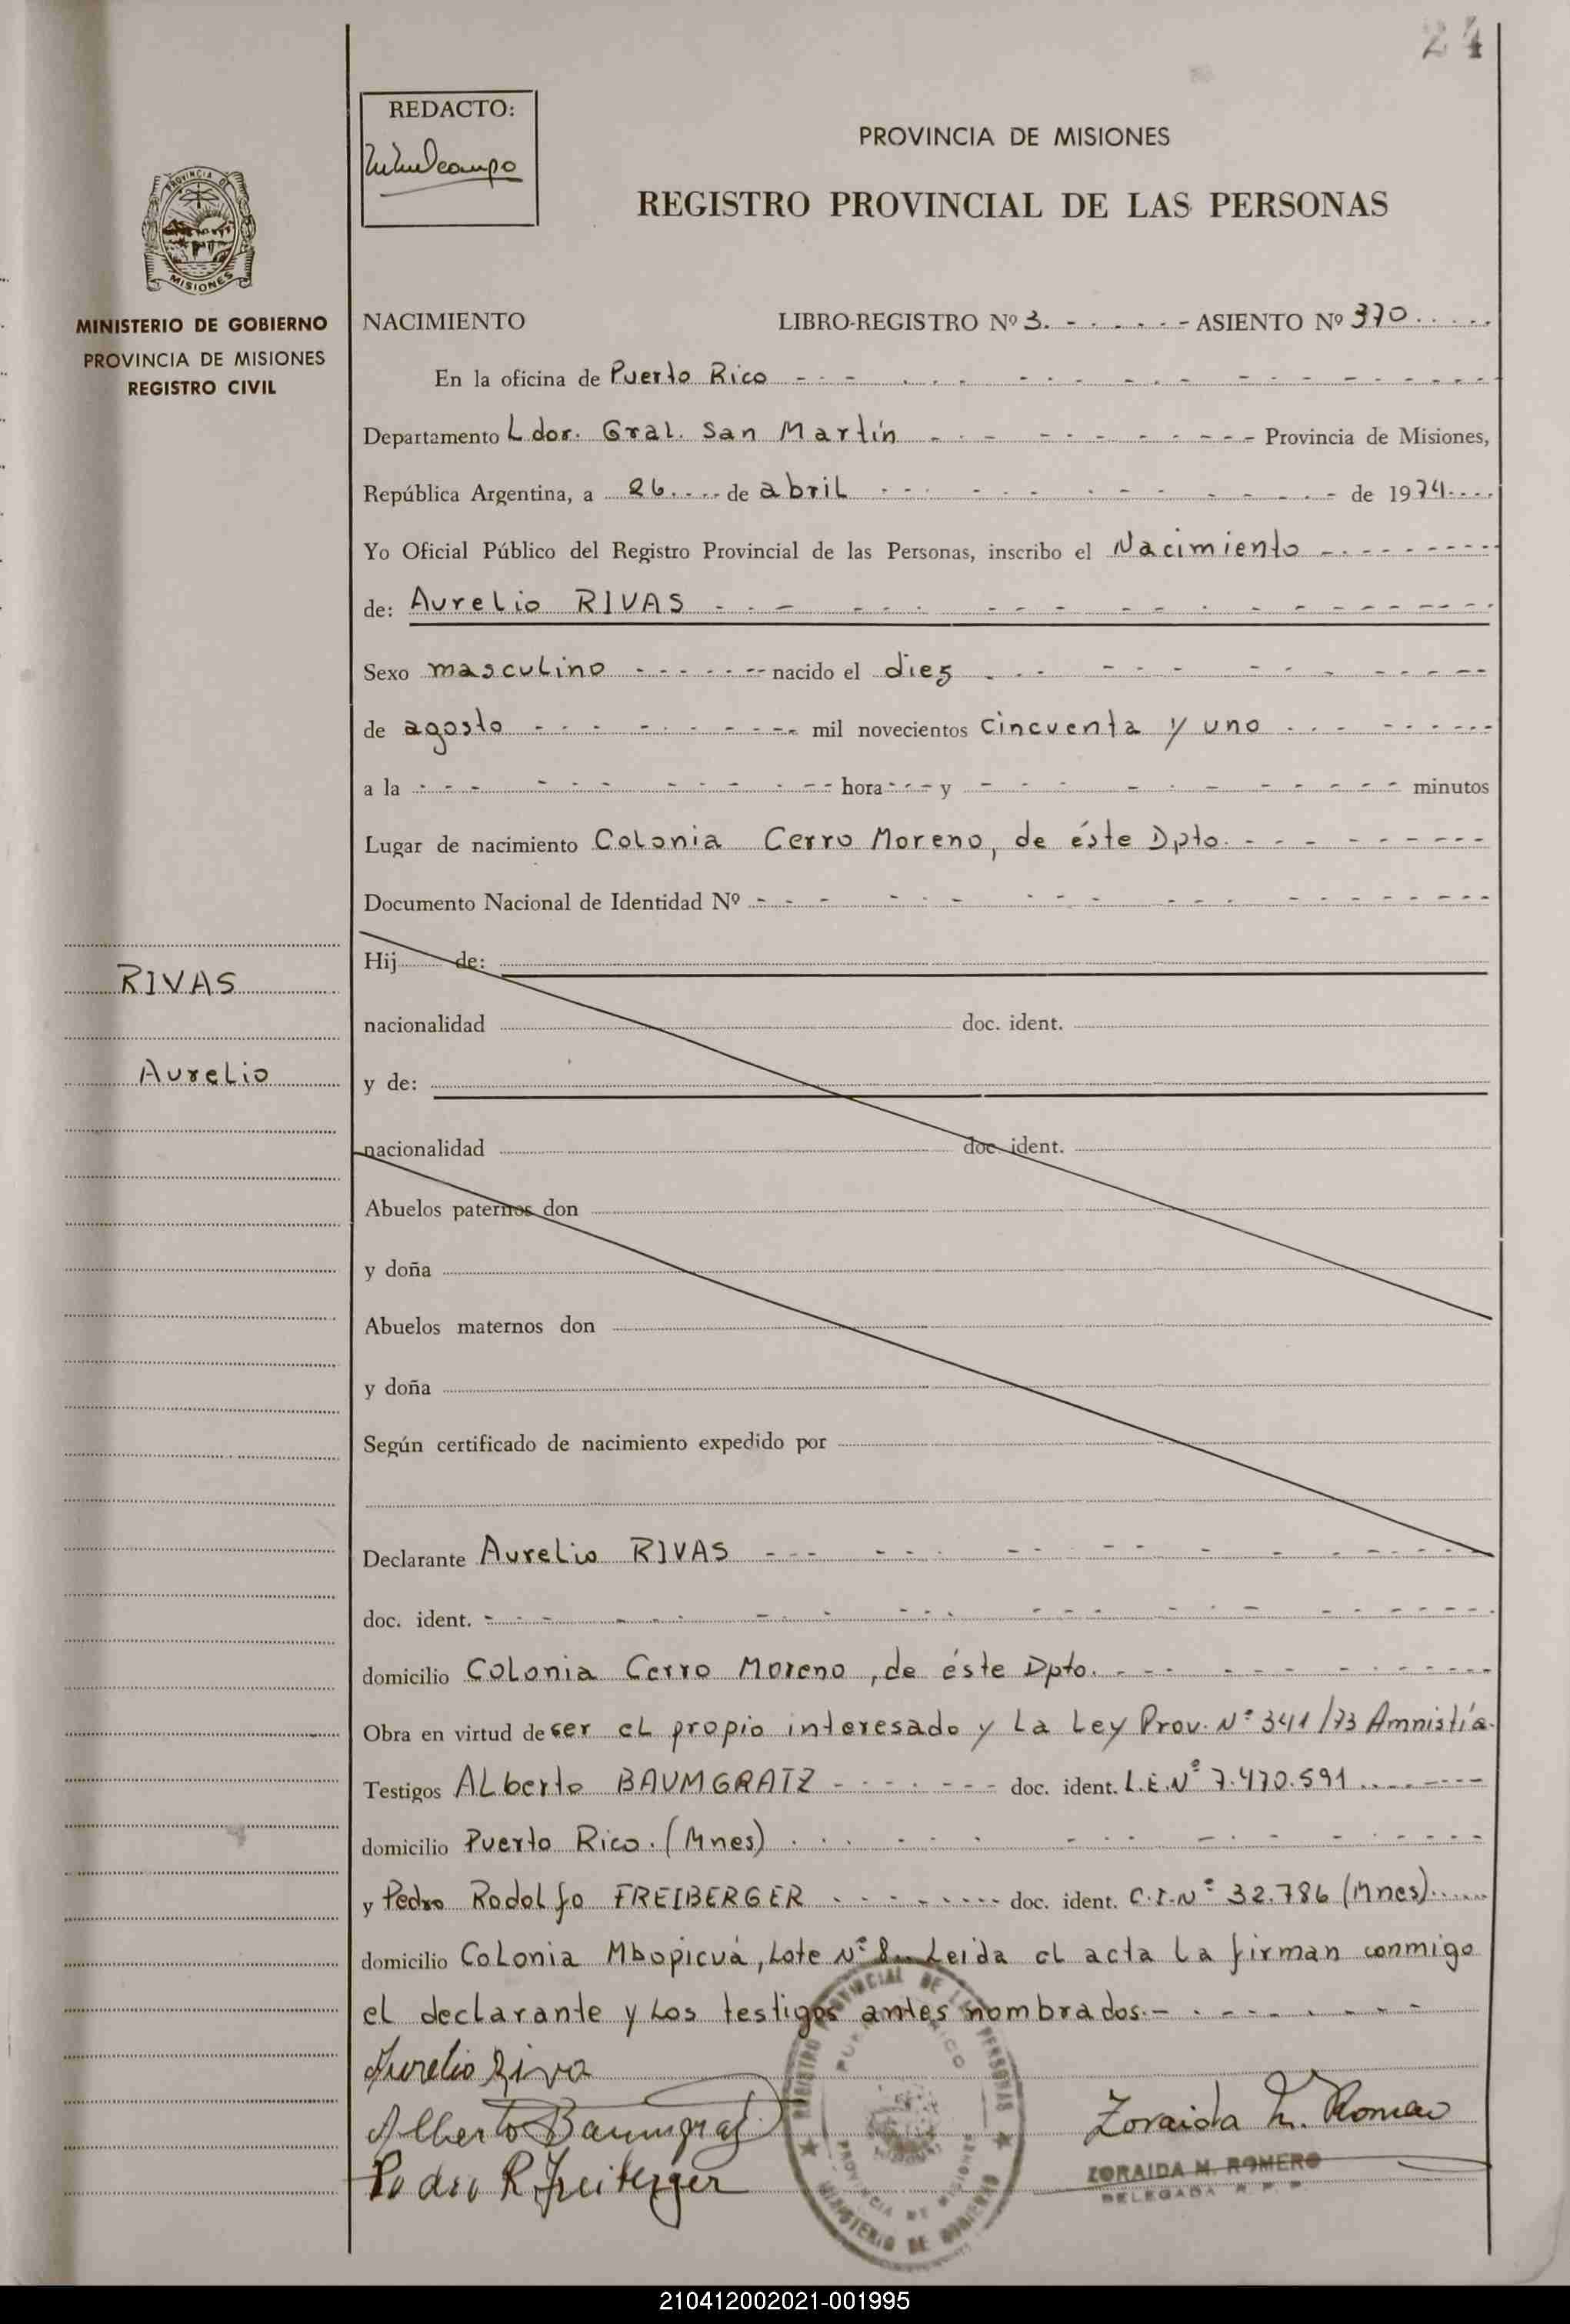 24
REDACTO:
PROVINCIA DE MISIONES
REGISTRO PROVINCIAL DE LAS PERSONAS
PROVINCIA DE
MISIONES
MINISTERIO DE GOBIERNO
PROVINCIA DE MISIONES
REGISTRO CIVIL
NACIMIENTO LIBRO-REGISTRO Nº 3. ASIENTO Nº 370
En la oficina de Puerto Rico
Departamento Ldor. Gral. San Martín Provincia de Misiones,
República Argentina, a 26 de abril de 1974
Yo Oficial Público del Registro Provincial de las Personas, inscribo el Nacimiento
de: Aurelio RIVAS
Sexo masculino nacido el diez
de agosto mil novecientos cincuenta y uno
a la hora y minutos
Lugar de nacimiento Colonia Cerro Moreno, de éste Dpto.
Documento Nacional de Identidad Nº
Hij de:
RIVAS
nacionalidad doc. ident.
Aurelio
y de:
nacionalidad doc. ident.
Abuelos paternos don
y doña
Abuelos maternos don
y doña
Según certificado de nacimiento expedido por
Declarante Aurelio RIVAS
doc. ident.
domicilio Colonia Cerro Moreno, de éste Dpto.
Obra en virtud de ser el propio interesado y la Ley Prov. Nº 341/73 Amnistía.
Testigos Alberto BAUMGRATZ doc. ident. L.E.Nº 7.470.591
domicilio Puerto Rico. (Mnes)
y Pedro Rodolfo FREIBERGER doc. ident. C.I.Nº 32.786 (Mnes)
domicilio Colonia Mbopicuá, Lote Nº 8. Leida el acta la firman conmigo
el declarante y los testigos antes nombrados.-
Aurelio Riva
Alberto Baumgratz
Pedro R Freiberger
REGISTRO PROVINCIAL DE LAS PERSONAS
PUERTO RICO
PROVINCIA DE MISIONES
MINISTERIO DE GOBIERNO
Zoraida M. Romero
ZORAIDA M. ROMERO
DELEGADA R. P. P.
210412002021-001995